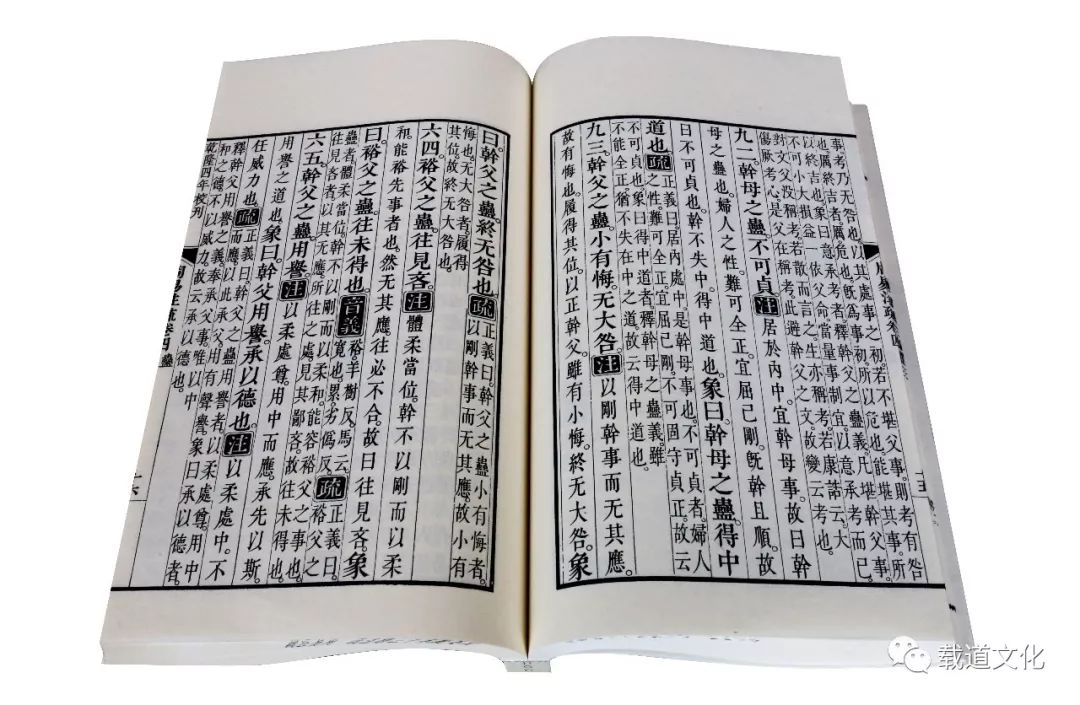 事考乃无咎也以其處事之初。若不堪父事。則考有咎
也。厲終吉者。厲危也。既爲事初。所以危也。能堪其事。所
以終吉也。象曰意承考者。釋幹父之蠱義。凡堪幹父事。
不可小大損益一依父命。當量事制宜。以意承考而已。
對文父没稱考。若散而言之。生亦稱考。若康誥云。大
傷厥考心。是父在稱考。此避幹父之文。故變云考也。
九二。幹母之蠱。不可貞。注居於內中。宜幹母事。故曰幹
母之蠱也。婦人之性。難可全正。宜屈己剛。既幹且順。故
曰不可貞也。幹不失中。得中道也。象曰。幹母之蠱。得中
道也。疏正義曰。居內處中。是幹母事也。不可貞者。婦人
之性。難可全正。宜屈己剛。不可固守貞正。故云
不可貞也。象曰得中道者。釋幹母之蠱義。雖
不能全正。猶不失在中之道。故云得中道也。
九三。幹父之蠱。小有悔。无大咎。注以剛幹事。而无其應。
故有悔也。履得其位。以正幹父。雖有小悔。終无大咎。象
曰。幹父之蠱。終无咎也。疏正義曰。幹父之蠱小有悔者。
以剛幹事。而无其應。故小有
悔也。无大咎者。履得
其位。故終无大咎也。
六四。裕父之蠱。往見吝。注體柔當位。幹不以剛而以柔
和。能裕先事者也。然无其應。往必不合。故曰往見吝。象
曰。裕父之蠱。往未得也。音義裕。羊樹反。馬云
寬也。累。劣僞反。疏正義曰。裕父之
蠱者。體柔當位。幹不以剛而以柔和。能容裕父之事也。
往見吝者。以其无應。所往之處。見其鄙吝。故往未得也。
六五。幹父之蠱。用譽。注以柔處尊。用中而應。承先以斯。
用譽之道也。象曰。幹父用譽。承以德也。注以柔處中。不
任威力也。疏正義曰。幹父之蠱用譽者。以柔處尊。用中
而應。以此承父。用有聲譽。象曰承以德者。
釋幹父用譽之義。奉承父事。唯以中
和之德。不以威力。故云承以德也。
乾隆四年校刊
載道文化